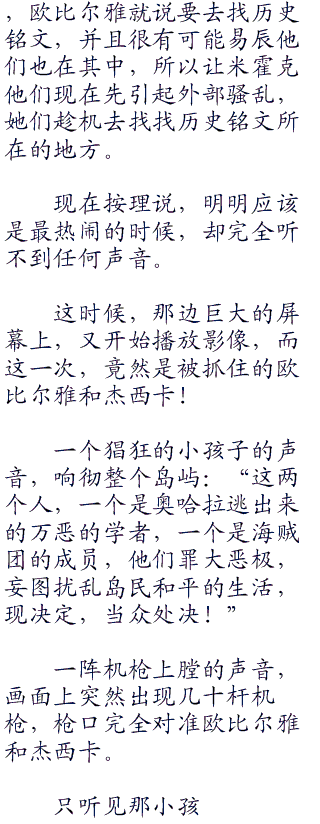 ，欧比尔雅就说要去找历史
铭文，并且很有可能易辰他
们也在其中，所以让米霍克
他们现在先引起外部骚乱，
她们趁机去找找历史铭文所
在的地方。
现在按理说，明明应该
是最热闹的时候，却完全听
不到任何声音。
这时候，那边巨大的屏
幕上，又开始播放影像，而
这一次，竟然是被抓住的欧
比尔雅和杰西卡！
一个猖狂的小孩子的声
音，响彻整个岛屿：“这两
个人，一个是奥哈拉逃出来
的万恶的学者，一个是海贼
团的成员，他们罪大恶极，
妄图扰乱岛民和平的生活，
现决定，当众处决！”
一阵机枪上膛的声音，
画面上突然出现几十杆机
枪，枪口完全对准欧比尔雅
和杰西卡。
只听见那小孩